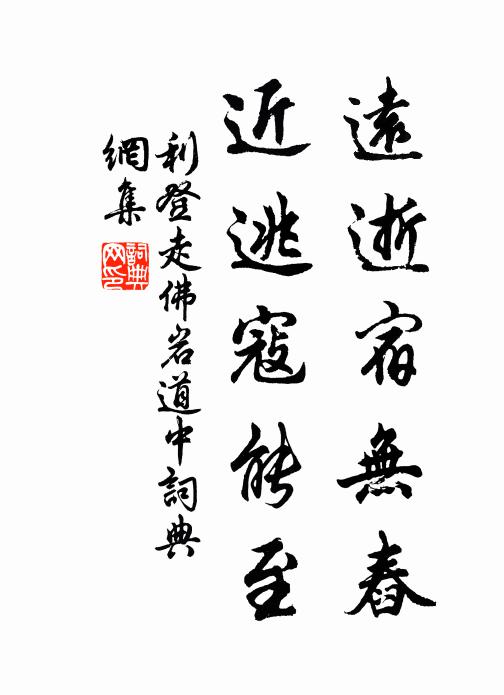 遠逝宿無舂
近逃寇能至
利登走佛岩道中詞典
網集
詞典
网印